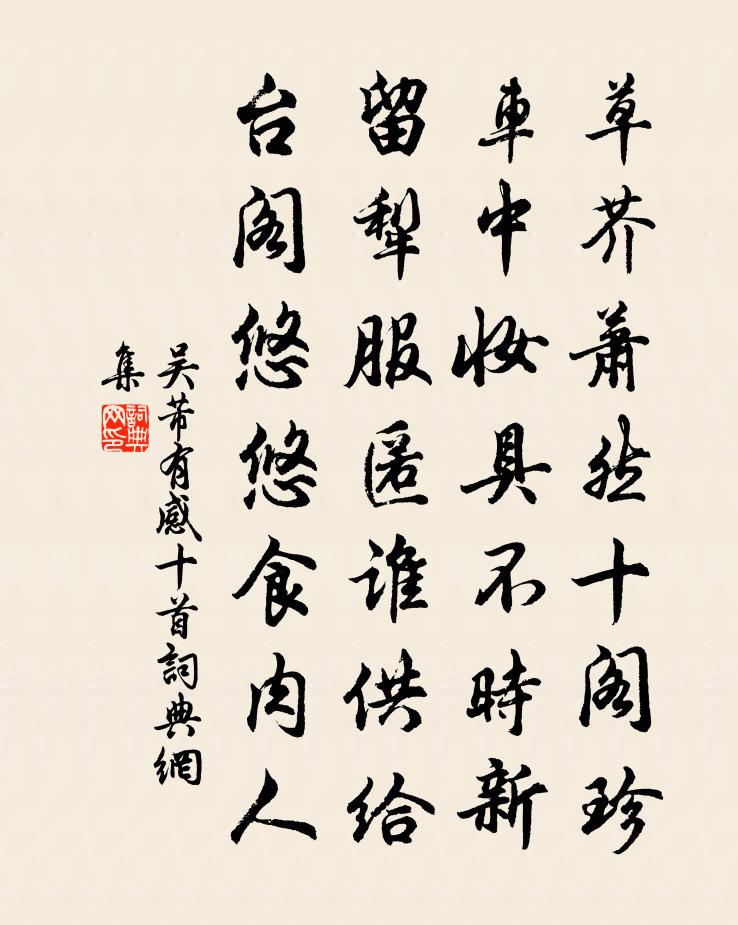 草芥蕭然十閣珍
車中妝具不時新
留犁服匿誰供給
台閣悠悠食肉人
吴芾有感十首詞典網
集
詞典
网印